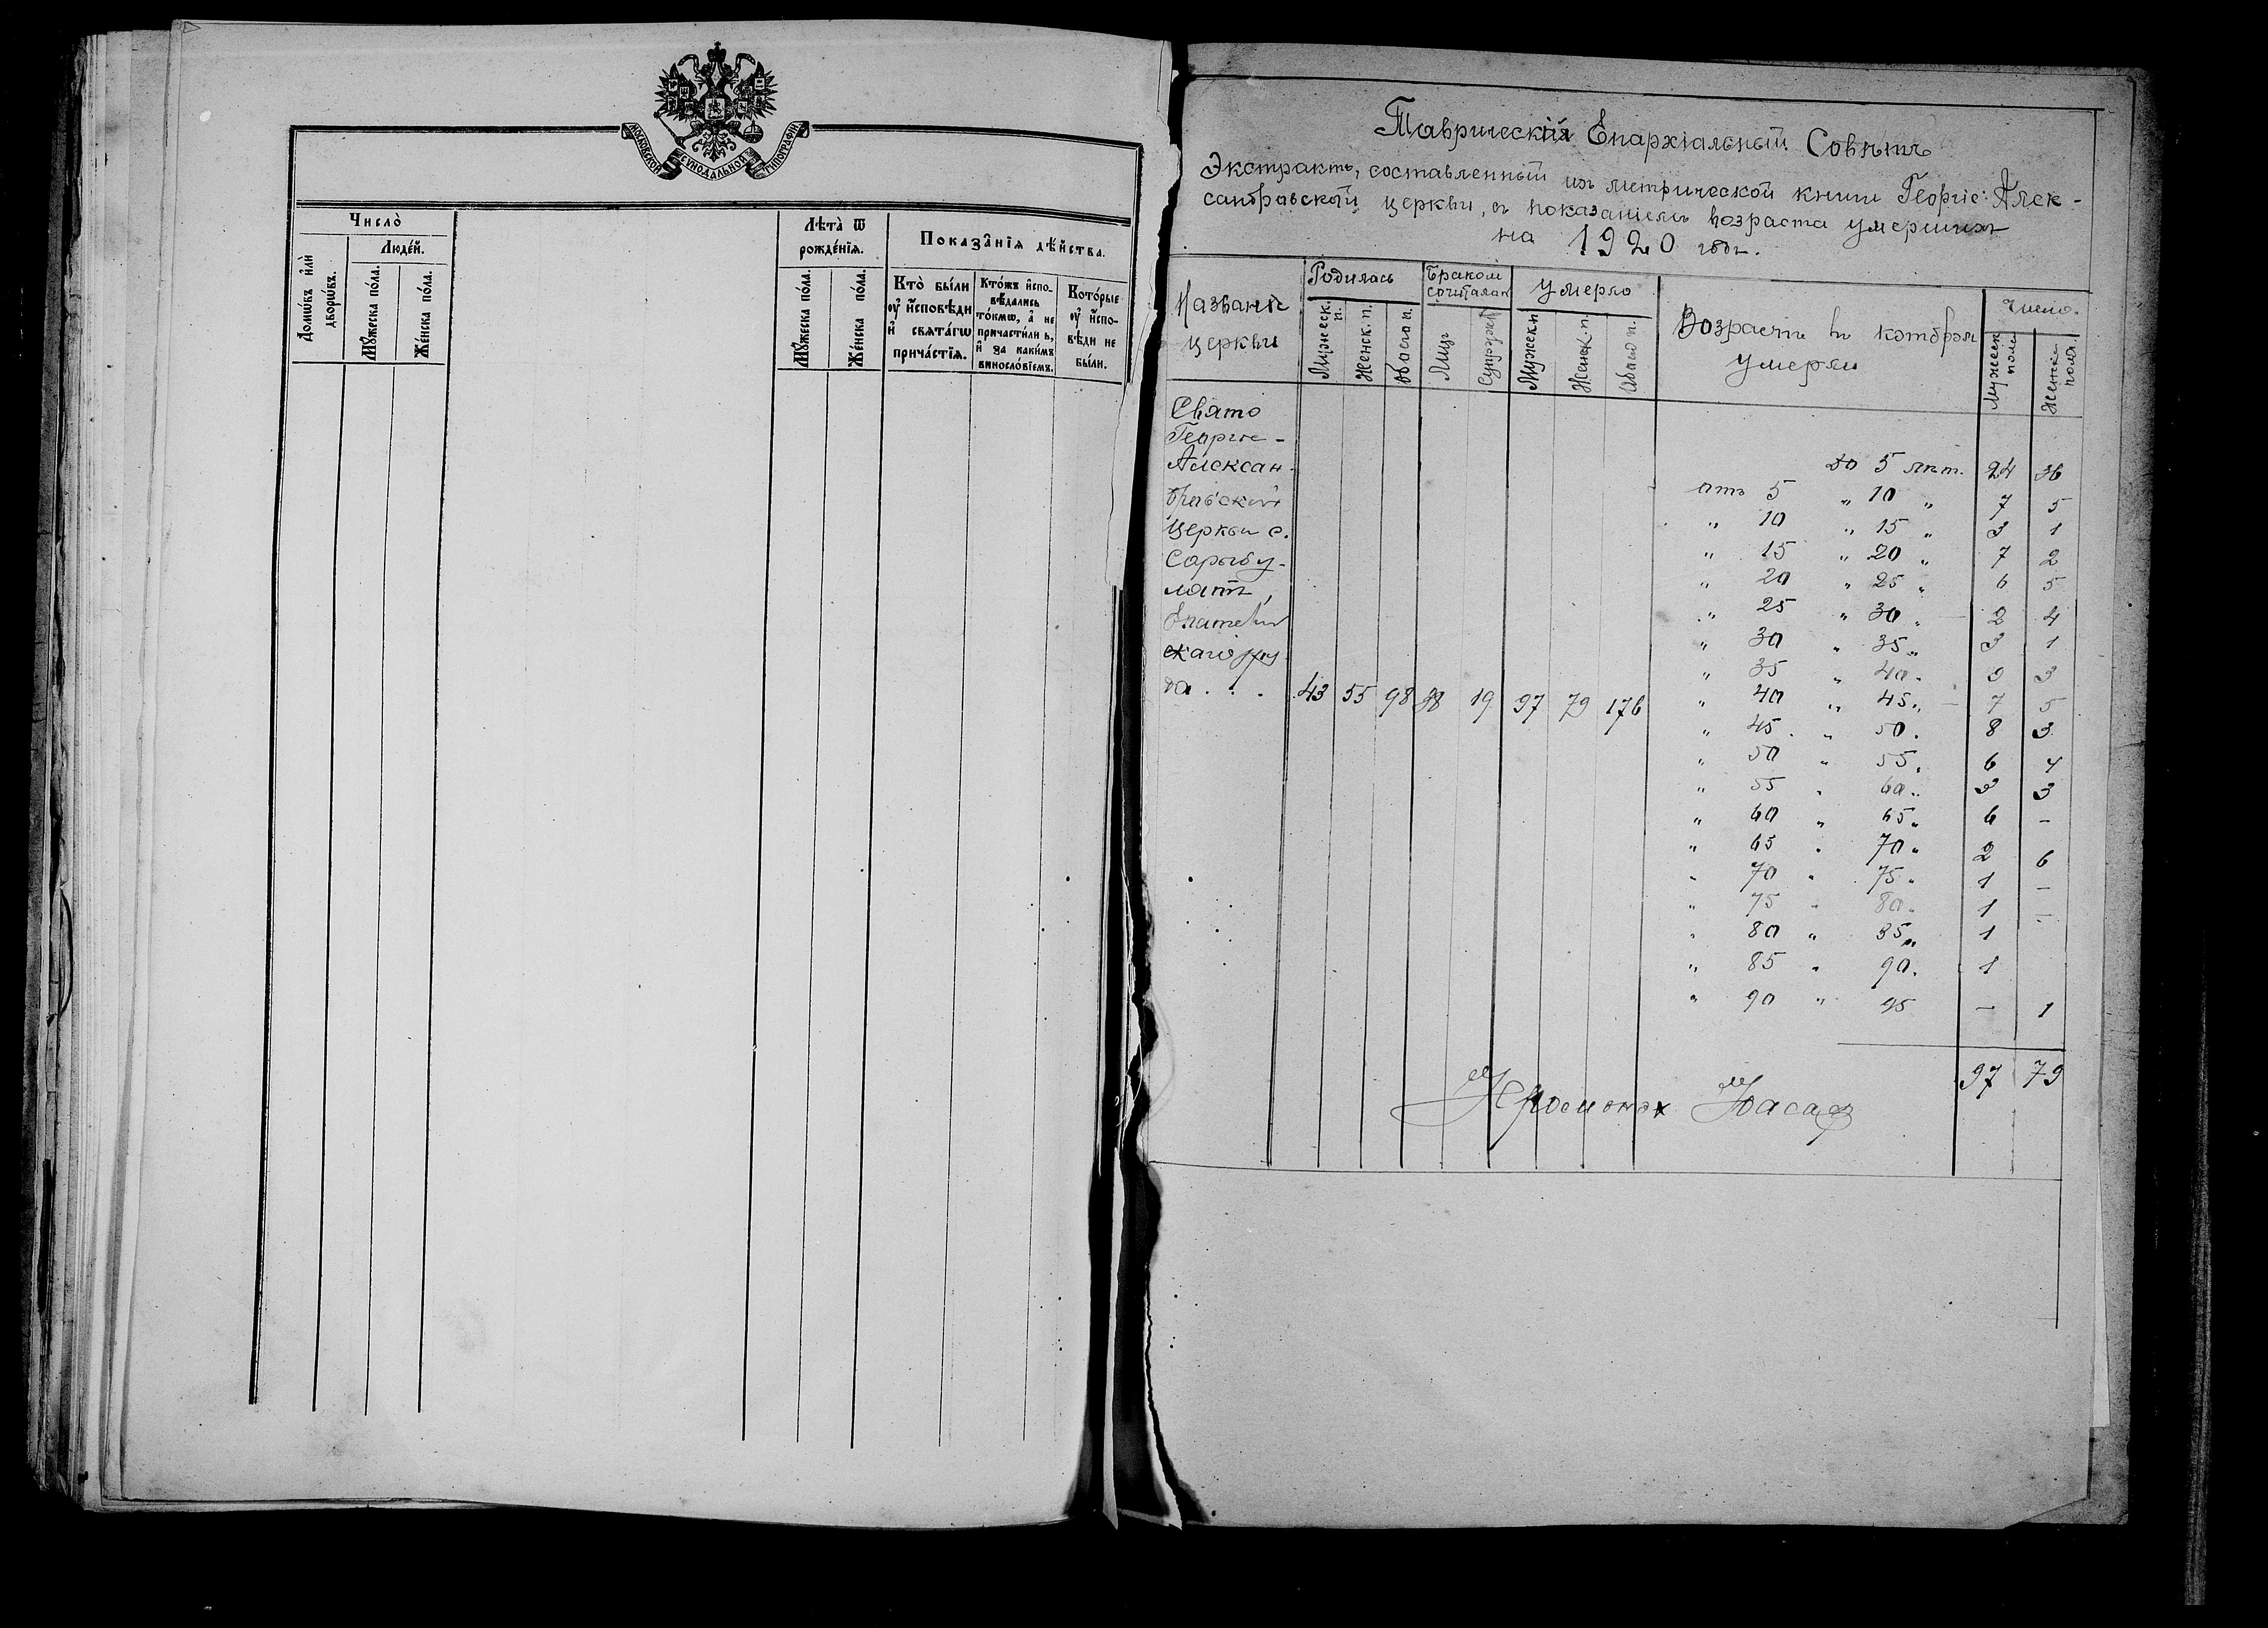 МОСКОВСКОЙ СѴНОДАЛЬНОЙ ТИПОГРАФІИ
Число̀
Домѡ́въ и҆лѝ дворѡ́въ.
Люде́й.
Мꙋ́жеска по́ла.
Же́нска по́ла.
Лѣта̀ ѿ рожде́нїѧ.
Мꙋ́жеска по́ла.
Же́нска по́ла.
Показа̂нїѧ дѣ́йства.
Кто̀ бы́ли ᲂу҆ и҆сповѣди и҆ свѧта́гѡ прича́стїѧ.
Кто́жъ и҆спо-вѣ́дались то́кмѡ, а҆ не причасти́лись, и҆ за каки́мъ винослѡ́вїемъ.
Кото́рые ᲂу҆ и҆спо-вѣди не бы́ли.
Таврическій Епархіальный Совѣтъ
Экстрактъ, составленный изъ метрической книги Георгіе-Алек-
сандровской церкви, съ показаніемъ возраста умершихъ
на 1920 годъ.
Названіе церкви
Родилась
Мужеск. п.
Женск. п.
Обоего п.
Браком сочеталась
Лицъ
Супруж
Умерло
Мужеск п
Женск. п.
Обоего п.
Возрастъ въ котором умерли
Число.
Мужеск пола
Женск пола.
Свято
Георгіе-
Алексан-
дровской
Церкви с.
Сарыбу-
латъ,
Евпаторій
скаго уѣз
да . . . 43 55 98 38 19 97 79 176
до 5 лѣт. 24 36
отъ 5 " 10 " 7 5
" 10 " 15 " 3 1
" 15 " 20 " 7 2
" 20 " 25 " 6 5
" 25 " 30 " 2 4
" 30 " 35 " 3 1
" 35 " 40 " 9 3
" 40 " 45 " 7 5
" 45 " 50 " 8 3
" 50 " 55 " 6 7
" 55 " 60 " 3 3
" 60 " 65 " 6 -
" 65 " 70 " 2 6
" 70 " 75 " 1 -
" 75 " 80 " 1 -
" 80 " 85 " 1
" 85 " 90 " 1
" 90 " 95 - 1
97 79
Іеромонах Іоасаф